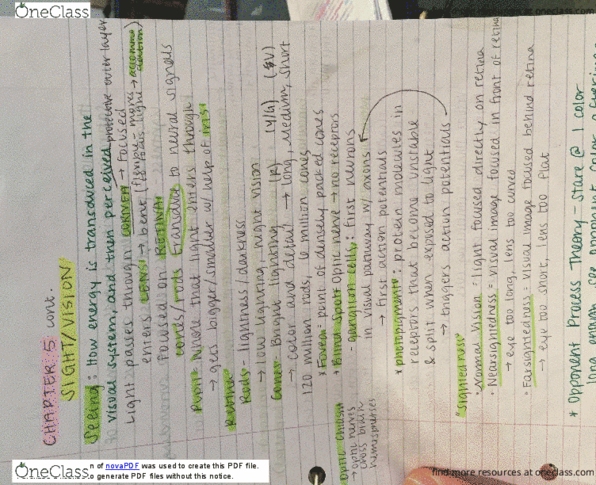 OneClass
find more resources at oneclass.com
CHAPTER 5 cont.
SIGHT/VISION
Seeing: How energy is transduced in the
visual system, and then perceived
protective outer layer
Light passes through CORNEA → Focused
enters LENS → bent (flexible - moves to focus light →
focused on RETINA
cones/rods transduce to neural signals
Pupil: where that light enters through
→ gets bigger/smaller w/ help of IRIS
Retina
Rods - lightness/darkness
→ low lighting, night vision
Cones - Bright lighting (R) (Y/G) (BV)
→ color and detail → long, medium, short
120 million rods, 6 million cones
* Fovea = point of densely packed cones
* Blind Spot Optic nerve → no receptors
ganglion cells: first neurons
in visual pathway w/ axons
→ first action potentials
* photopigments: protein molecules in
receptors that become unstable
& split when exposed to light
→ triggers action potentials
optic chiasm
→ optic nerves
cross brain
hemispheres
"Sightedness"
• Normal Vision = light focused directly on retina
• Nearsightedness = visual image focused in front of retina
→ eye too long, lens too curved
• Farsightedness = visual image focused behind retina
→ eye too short, lens too flat
* Opponent Process Theory - stare @ 1 color
long enough, see opponent color
OneClass
n of novaPDF was used to create this PDF file.
o generate PDF files without this notice.
find more resources at oneclass.com